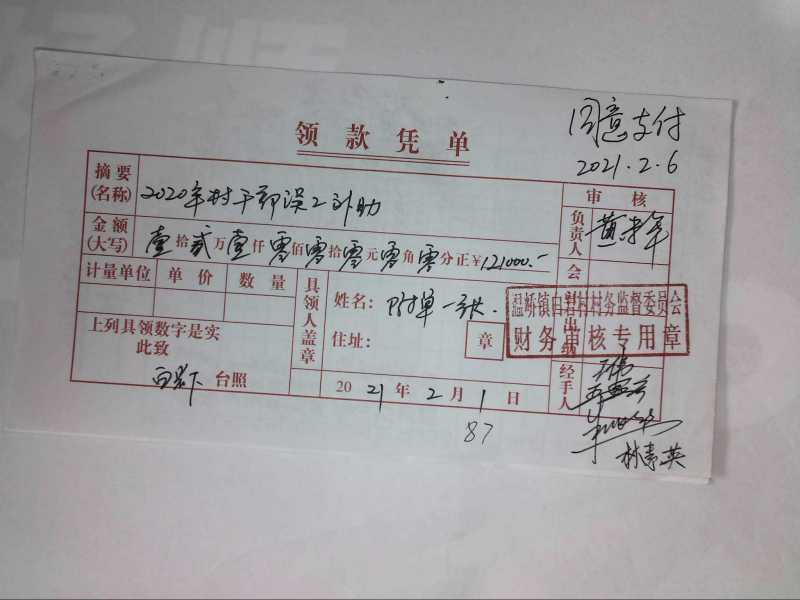 同意支付
2021.2.6
领款凭单
摘要(名称) 2020年村干部误工补助
审核
负责人
金额(大写) 壹拾贰万壹仟零佰零拾零元零角零分正¥121000.-
计量单位 单价 数量
具领人盖章
姓名:附单一张.
住址:
章
会
出纳
温峤镇白岩村村务监督委员会
财务审核专用章
上列具领数字是实
此致
白岩下 台照
2021年2月1日
经手人
林素英
87